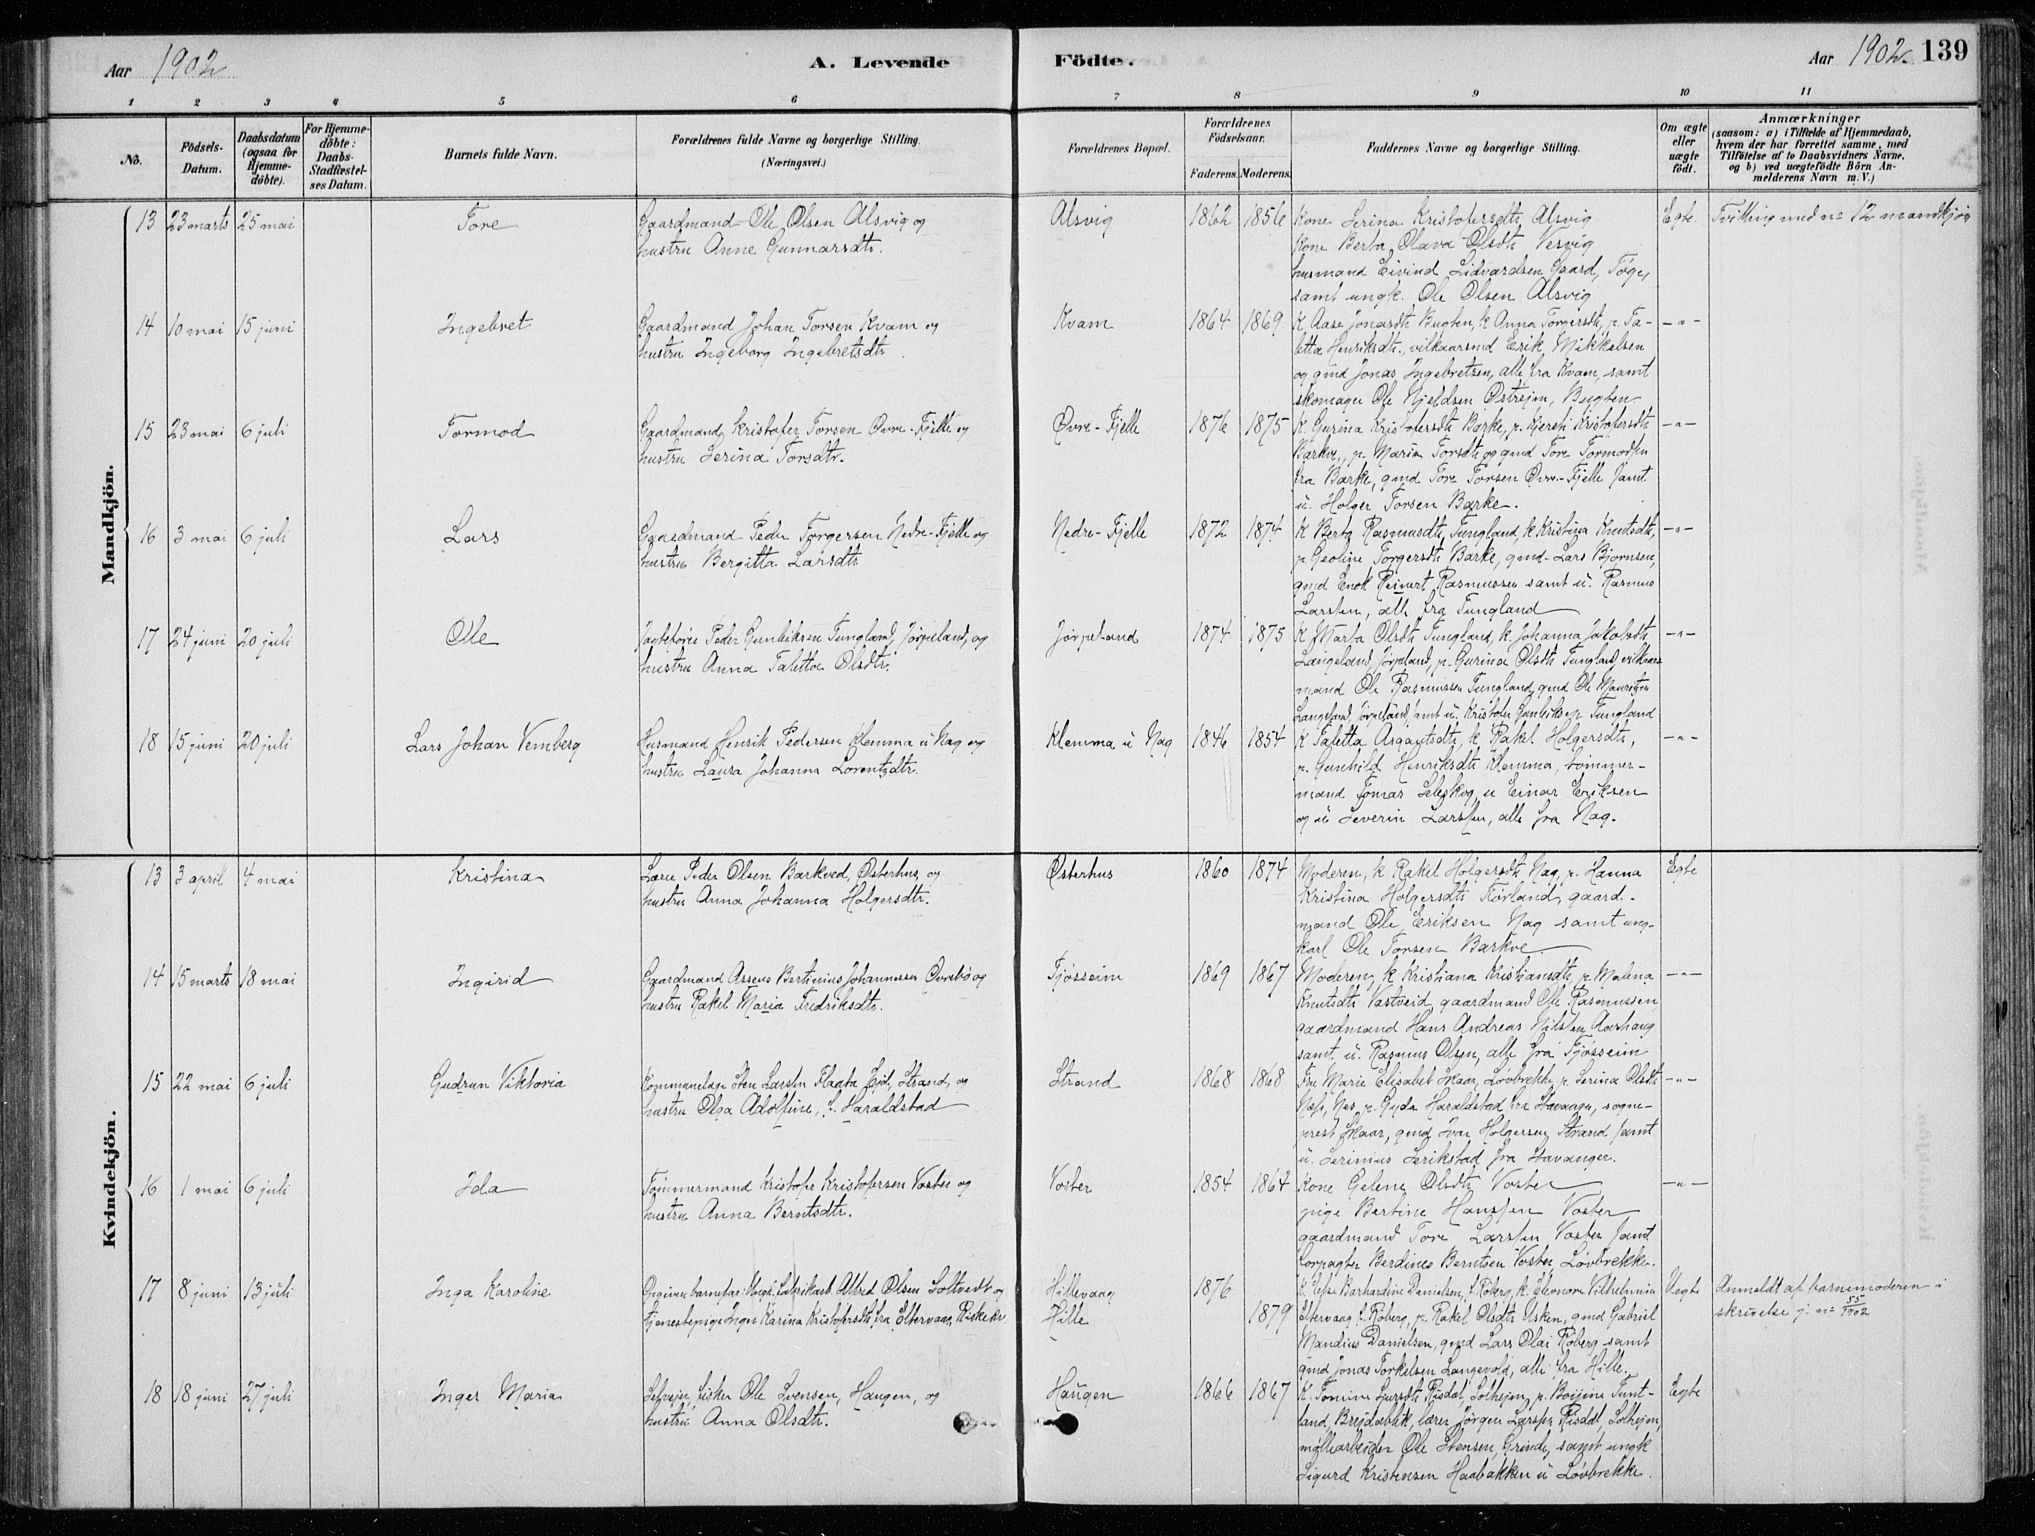 Aar 1902
A. Levende
Födte.
Aar 1902.
139
1 2 3 4 5 6 7 8 9 10 11
No.
Födsels-Datum.
Daabsdatum (ogsaa for Hjemme-döbte).
For Hjemme-döbte: Daabs-Stadfæstel-ses Datum.
Barnets fulde Navn.
Forældrenes fulde Navne og borgerlige Stilling.
(Næringsvei.)
Forældrenes Bopæl.
Forældrenes Födselsaar.
Faderens. Moderens.
Faddernes Navne og borgerlige Stilling.
Om ægte eller uægte födt.
Anmærkninger
(saasom: a) i Tilfælde af Hjemmedaab,
hvem der har forrettet samme, med
Tilföielse af to Daabsvidners Navne,
og b) ved uægtefödte Börn An-
melderens Navn m. V.)
Mandkjön.
13 23 marts 25 mai
Tore
Gaardmand Ole Olsen Alsvig og
hustru Anne Gunnarsdtr.
Alsvig
1862 1856
Kone Serina Kristofersdtr Alsvig
Kone Berta Olava Olsdtr Vesvig
husmand Eivind Lidvardsen Gaard, Foge,
samt ungk. Ole Olsen Alsvig
Egte.
Tvilling med no 12 mandkjøn
14 10 mai 15 juni
Ingebret
Gaardmand Johan Torsen Kvam og
hustru Ingeborg Ingebretsdtr.
Kvam
1864 1869
K Aase Jonasdtr Bugten, k Anna Torgersdtr, p. Ta-
letta Henriksdtr, vilkaarsmd Erik Mikkelsen
og gmd Jonas Ingebretsen, alle fra Kvam, samt
skomager Ole Njeldsen Østrejm, Bugten
-"-
15 23 mai 6 juli
Tormod
Gaardmand Kristofer Torsen Øvre-Fjelle og
hustru Serina Torsdtr.
Øvre-Fjelle
1876 1875
K. Gurina Kristofersdtr Barke, p. Kjersti Kristofersdtr
Barkve, p. Maria Torsdtr og gmd Tore Tormodsen
fra Barke, gmd Tore Torsen Øvre-Fjelle samt
u. Holger Torsen Barke.
-"-
16 3 mai 6 juli
Lars
Gaardmand Peder Torgersen Nedre-Fjelle og
hustru Bergitta Larsdtr
Nedre-Fjelle
1872 1874
K Berta Rasmusdtr, Tungland, k Kristina Knutsdtr,
p. Geoline Torgersdtr Barke, gmd Lars Bjørnsen,
gmd Enok Reinert Rasmussen samt u. Rasmus
Larsen, alle fra Tungland
-"-
17 24 juni 20 juli
Ole
Jagtefører Peder Gunleiksen Tungland, Jørpeland, og
hustru Anna Taletta Olsdtr.
Jørpeland
1874 1875
K Marta Olsdtr Tungland, k. Johanna Jakobsdtr
Langeland, Jørpeland, p. Gurina Olsdtr Tungland, vilkaars-
mand Ole Rasmussen Tungland, gmd Ole Mauritzen
Langeland, Jørpeland samt u. Kristofer Gunleiksen Tungland
-"-
18 15 juni 20 juli
Lars Johan Vemberg
Husmand Henrik Pedersen Klemma u Nag og
hustru Laura Johanna Lorentsdtr.
Klemma u Nag
1846 1854
K Taletta Asgautsdtr, k Rakel Holgersdtr,
p. Gunhild Henriksdtr Klemma, tømmer-
mand Tomas Seleskog, u Einar Eriksen
og u Severin Larssen, alle fra Nag.
-"-
Kvindekjön.
13 3 april 4 mai
Kristina
Lærer Peder Olsen Barkved, Østerhus, og
hustru Anna Johanna Holgersdtr.
Østerhus
1860 1874
Moderen, k Rakel Holgersdtr Nag, p. Hanna
Kristina Holgersdtr Førland, gaard-
mand Ole Eriksen Nag samt ung-
karl Ole Torsen Barkve
Egte
14 15 marts 18 mai
Ingirid
Gaardmand Assens Bertinius Johannessen Øvrebø og
hustru Rakel Maria Fredriksdtr.
Fjøsseim
1869 1867
Moderen, k Kristiana Kristiansdtr, p. Malena
Knutsdtr Vastveid, gaardmand Ole Rasmussen,
gaardmand Hans Andreas Nilssen Aarhaug
samt u. Rasmus Olsen, alle fra Fjøsseim
-"-
15 22 mai 6 juli
Gudrun Viktoria
Kommunelæge Sten Larsen Flaata Eid, Strand, og
hustru Olga Adolfine, f. Haraldstad
Strand
1868 1868
Fru Marie Elisabet Skaar, Løvbrekke, p. Serina Olsdtr
Næss, Nes, p. Gyda Haraldstad fra Stavanger, sogne-
prest Skaar, gmd Ivar Holgersen Strand samt
u. Serinius Serikstad fra Stavanger.
-"-
16 1 mai 6 juli
Ida
Tømmermand Kristofer Kristofersen Voster og
hustru Anna Berntsdtr.
Voster
1854 1864
Kone Gelene Olsdtr Voster
pige Bertine Hanssen Voster
gaardmand Tore Larssen Voster samt
forpagter Berdines Berntsen Voster Løvbrekke.
-"-
17 8 juni 13 juli
Inga Karoline
Opgiven barnefar: Ungk. fabrikarb. Alfred Olsen Soltvedt og
tjenestepige Inger Karina Kristofersdtr fra Eltervaag, Riskekv.
Hillevaag
Hille
1876
1879
K. Else Barhardine Danielsen, f. Røberg, k. Eleonore Vilhelmine
Eltervaag f. Røberg, p. Rakel Olsdtr Usken, gmd Gabriel
Mandius Danielsen, gmd Lars Olai Røberg samt
gmd Jonas Torkelsen Langevold, alle fra Hille.
Uegte
Anmeldt af barnemoderen i
skrivelse j. no 55/1902
18 18 juni 27 juli
Inger Maria
Selvejer, fisker Ole Svensen, Haugen, og
hustru Anna Olsdtr.
Haugen
1866 1867
K. Tomine Larsdtr Risdal, Solhejm, p. Boijine Tunt-
land, Brejdablik, lærer Jørgen Larsen Risdal, Solhejm,
møllearbeider Ole Stensen, Grinde, samt ungk
Sigurd Kristensen Haabakken u Løvbrekke.
Egte